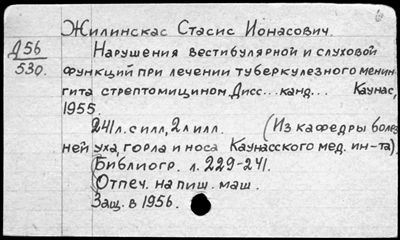 Жилинскас Стасис Ионасович.
Д56
530.
Нарушения вестибулярной и слуховой
функций при лечении туберкулезного менин-
гита стрептомицином. Дисс... канд... Каунас,
1955.
241 л. с илл, 2 л илл. (Из кафедры болез-
ней уха, горла и носа Каунасского мед. ин-та).
Библиогр. л. 229-241.
Отпеч. на пиш. маш.
Защ. в 1956.